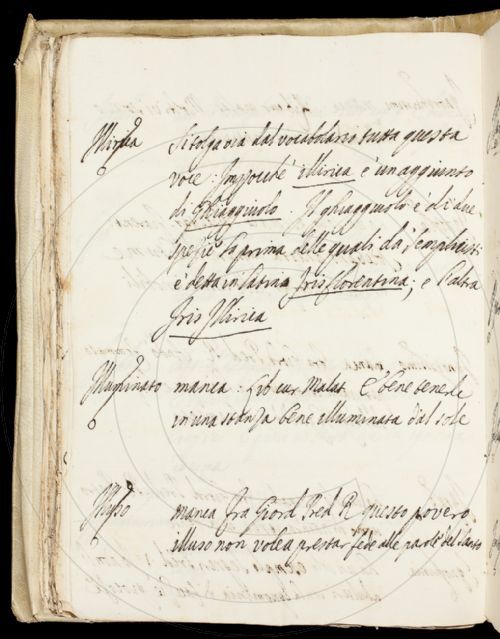 Illirica Si tolga via dal vocabolario tutta questa
voce: Impoiché illirica è un aggiunto
di Ghiaggiuolo. Il ghiaggiuolo è di due
spezie la prima delle quali da i semplicisti
è detta in latino Iris florentina; e l'altra
Iris Illirica
Illuminato manca: Lib cur. Malat. È bene tenerle
in una stanza bene illuminata dal sole
Illuso manca Fra Giord Pred R questo povero
illuso non volea prestar fede alle parole del Santo